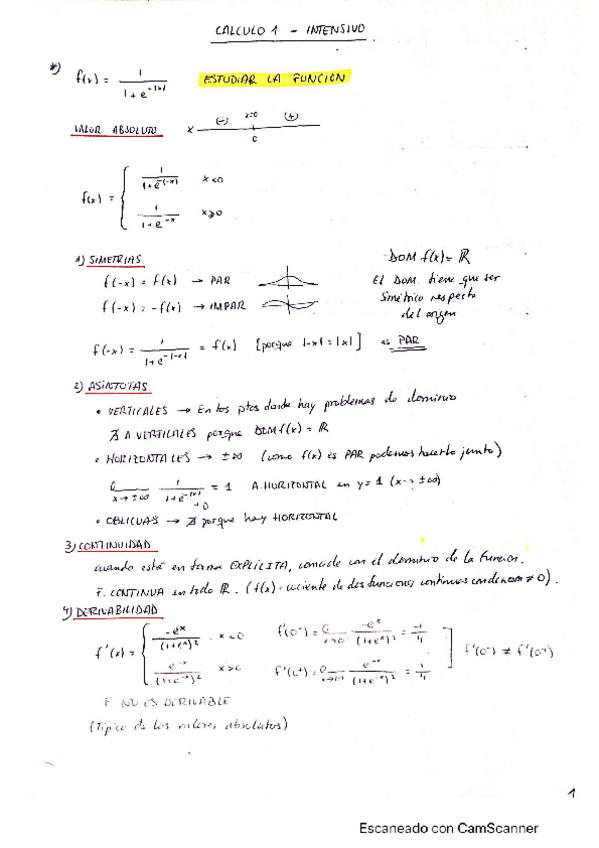 CALCULO 1 - INTENSIVO
*) f(x) = 1 / (1 + e^-|x|) ESTUDIAR LA FUNCIÓN
VALOR ABSOLUTO x (-) x=0 (+)
0
f(x) = { 1 / (1 + e^-(-x)) x<0
1 / (1 + e^-x) x≥0
1) SIMETRIAS DOM f(x) = ℝ
f(-x) = f(x) → PAR El DOM. tiene que ser
f(-x) = -f(x) → IMPAR simétrico respecto
del origen
f(-x) = 1 / (1 + e^-|-x|) = f(x) [porque |-x| = |x|] es PAR
2) ASINTOTAS
• VERTICALES → En los ptos donde hay problemas de dominio
∄ A. VERTICALES porque DOM f(x) = ℝ
• HORIZONTALES → ±∞ (como f(x) es PAR podemos hacerlo junto)
x→±∞ 1 / (1 + e^-|x|) = 1 A. HORIZONTAL en y=1 (x→±∞)
→0
• OBLICUAS → ∄ porque hay HORIZONTAL
3) CONTINUIDAD
cuando está en forma EXPLÍCITA, coincide con el dominio de la funcion.
F. CONTINUA en todo ℝ. (f(x) = cociente de dos funciones continuas con denom ≠ 0).
4) DERIVABILIDAD
f'(x) = { -e^x / (1+e^x)² x<0 f'(0⁻) = x→0⁻ -e^x / (1+e^x)² = -1/4
e^-x / (1+e^-x)² x>0 f'(0⁺) = x→0⁺ e^-x / (1+e^-x)² = 1/4 ] f'(0⁻) ≠ f'(0⁺)
F NO ES DERIVABLE
(Típico de los valores absolutos)
1
Escaneado con CamScanner